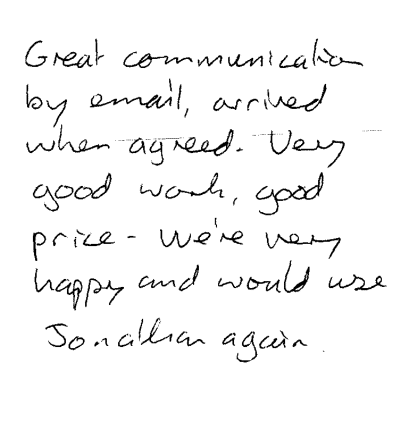 Great communication
by email, arrived
when agreed. Very
good work, good
price - We're very
happy and would use
Jonathan again.